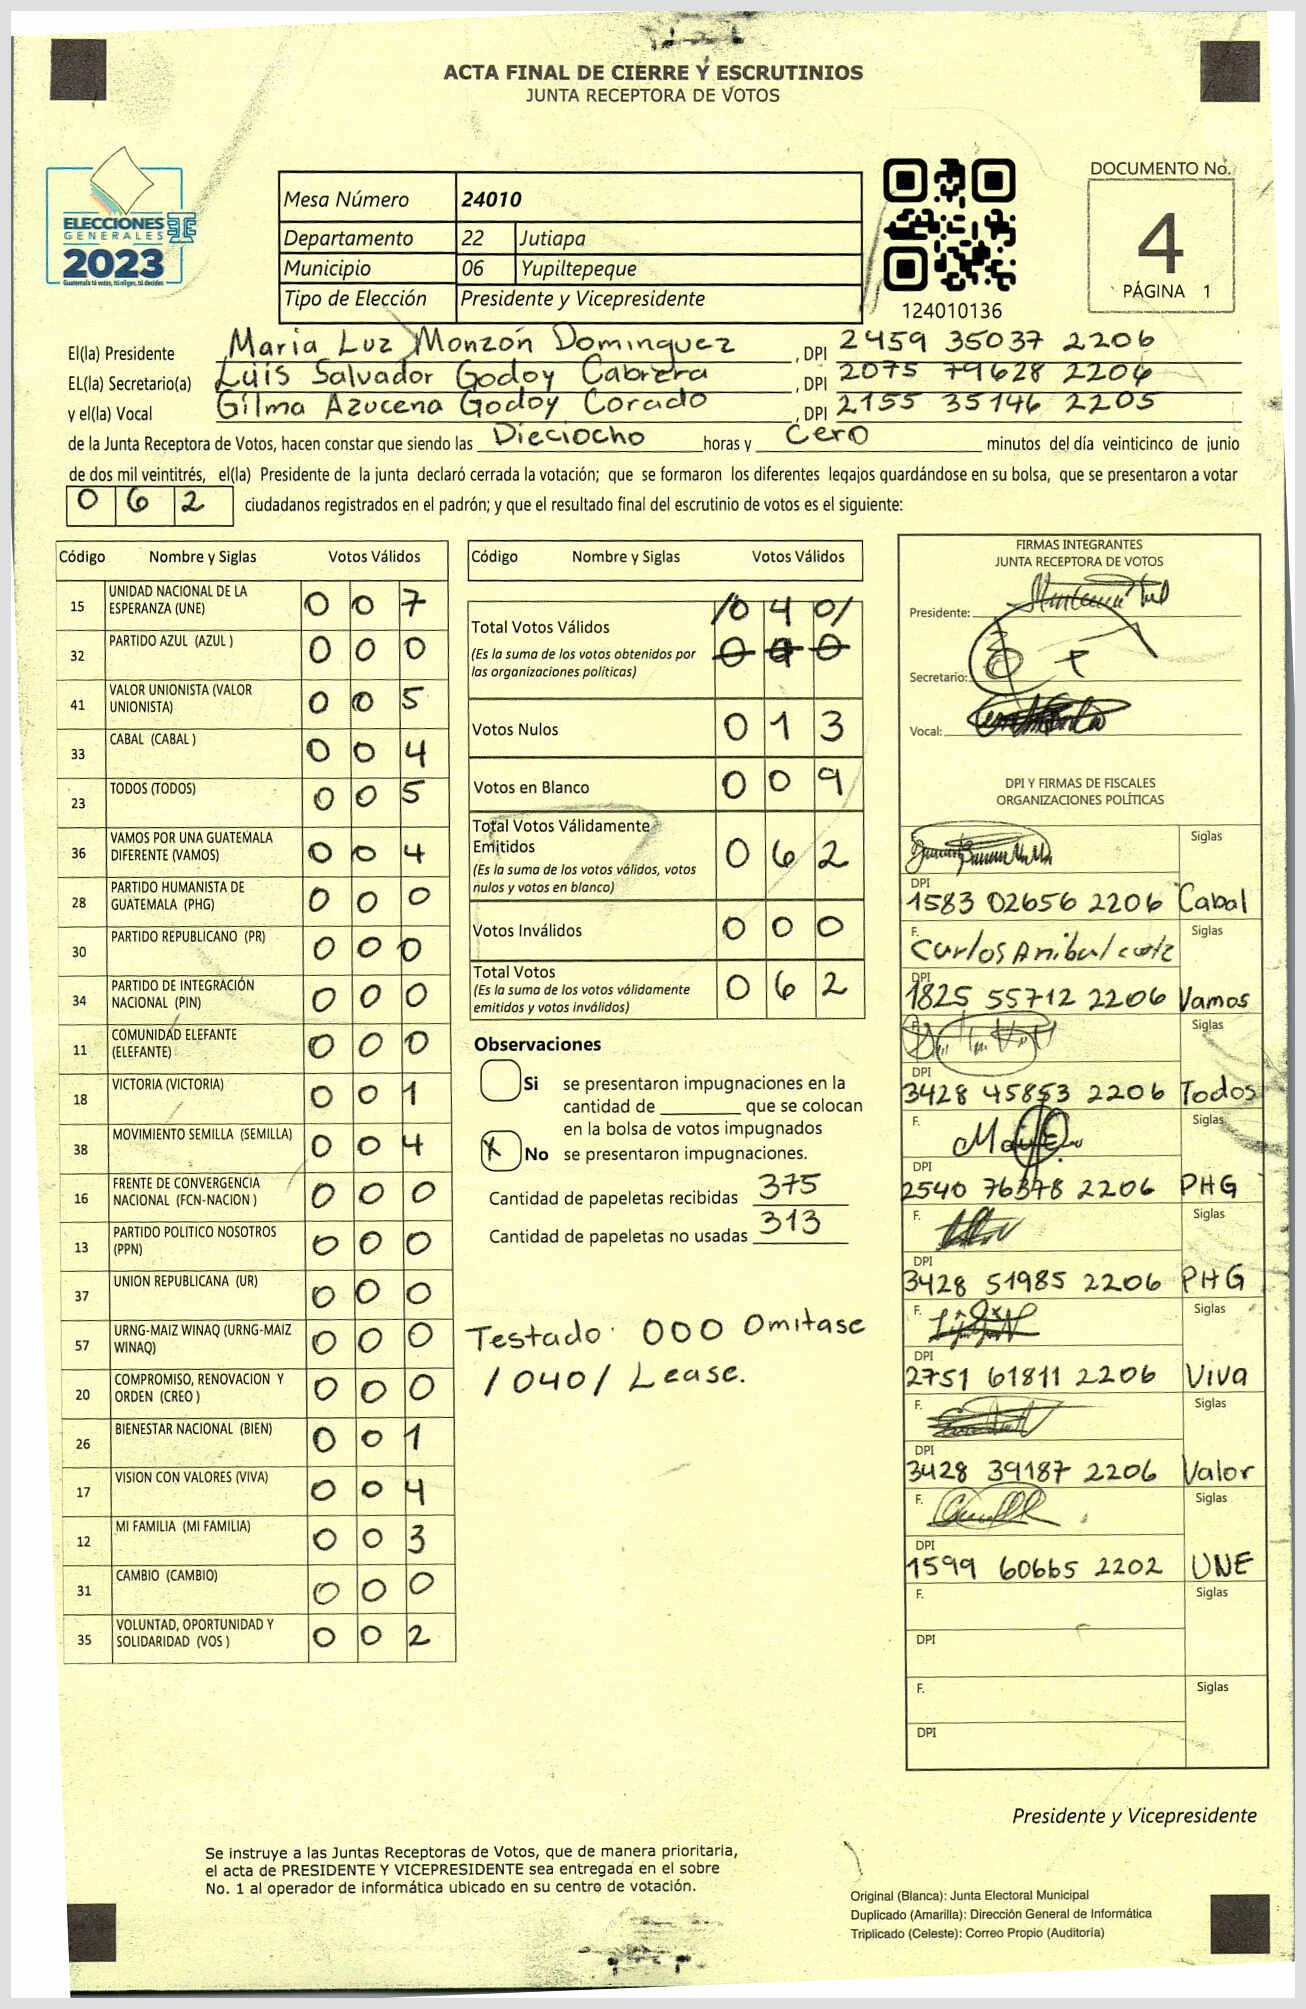 ACTA FINAL DE CIERRE Y ESCRUTINIOS
JUNTA RECEPTORA DE VOTOS
ELECCIONES
GENERALES
2023
Guatemala tú votas, tú eliges, tú decides
Mesa Número 24010
Departamento 22 Jutiapa
Municipio 06 Yupiltepeque
Tipo de Elección Presidente y Vicepresidente
124010136
DOCUMENTO No.
4
PÁGINA 1
El(la) Presidente Maria Luz Monzón Dominguez, DPI 2459 35037 2206
EL(la) Secretario(a) Luis Salvador Godoy Cabrera, DPI 2075 79628 2206
y el(la) Vocal Gilma Azucena Godoy Corado, DPI 2155 35146 2205
de la Junta Receptora de Votos, hacen constar que siendo las Dieciocho horas y Cero minutos del día veinticinco de junio
de dos mil veintitrés, el(la) Presidente de la junta declaró cerrada la votación; que se formaron los diferentes legajos guardándose en su bolsa, que se presentaron a votar
0 6 2 ciudadanos registrados en el padrón; y que el resultado final del escrutinio de votos es el siguiente:
Código Nombre y Siglas Votos Válidos
15 UNIDAD NACIONAL DE LA ESPERANZA (UNE) 0 0 7
32 PARTIDO AZUL (AZUL ) 0 0 0
41 VALOR UNIONISTA (VALOR UNIONISTA) 0 0 5
33 CABAL (CABAL ) 0 0 4
23 TODOS (TODOS) 0 0 5
36 VAMOS POR UNA GUATEMALA DIFERENTE (VAMOS) 0 0 4
28 PARTIDO HUMANISTA DE GUATEMALA (PHG) 0 0 0
30 PARTIDO REPUBLICANO (PR) 0 0 0
34 PARTIDO DE INTEGRACIÓN NACIONAL (PIN) 0 0 0
11 COMUNIDAD ELEFANTE (ELEFANTE) 0 0 0
18 VICTORIA (VICTORIA) 0 0 1
38 MOVIMIENTO SEMILLA (SEMILLA) 0 0 4
16 FRENTE DE CONVERGENCIA NACIONAL (FCN-NACION ) 0 0 0
13 PARTIDO POLITICO NOSOTROS (PPN) 0 0 0
37 UNION REPUBLICANA (UR) 0 0 0
57 URNG-MAIZ WINAQ (URNG-MAIZ WINAQ) 0 0 0
20 COMPROMISO, RENOVACION Y ORDEN (CREO ) 0 0 0
26 BIENESTAR NACIONAL (BIEN) 0 0 1
17 VISION CON VALORES (VIVA) 0 0 4
12 MI FAMILIA (MI FAMILIA) 0 0 3
31 CAMBIO (CAMBIO) 0 0 0
35 VOLUNTAD, OPORTUNIDAD Y SOLIDARIDAD (VOS ) 0 0 2
Código Nombre y Siglas Votos Válidos
Total Votos Válidos /0 4 0/
(Es la suma de los votos obtenidos por
las organizaciones políticas)
Votos Nulos 0 1 3
Votos en Blanco 0 0 9
Total Votos Válidamente
Emitidos 0 6 2
(Es la suma de los votos válidos, votos
nulos y votos en blanco)
Votos Inválidos 0 0 0
Total Votos 0 6 2
(Es la suma de los votos válidamente
emitidos y votos inválidos)
Observaciones
Si se presentaron impugnaciones en la
cantidad de ________ que se colocan
en la bolsa de votos impugnados
X No se presentaron impugnaciones.
Cantidad de papeletas recibidas 375
Cantidad de papeletas no usadas 313
Testado 000 Omitase
/040/ Lease.
FIRMAS INTEGRANTES
JUNTA RECEPTORA DE VOTOS
Presidente:
Secretario:
Vocal:
DPI Y FIRMAS DE FISCALES
ORGANIZACIONES POLÍTICAS
Siglas
DPI
1583 02656 2206 Cabal
F. Carlos Anibal Siglas
DPI
1825 55712 2206 Vamos
F. Siglas
DPI
3428 45853 2206 Todos
F. Siglas
DPI
2540 76378 2206 PHG
F. Siglas
DPI
3428 51985 2206 PHG
F. Siglas
DPI
2751 61811 2206 Viva
F. Siglas
DPI
3428 39187 2206 Valor
F. Siglas
DPI
1599 60665 2202 UNE
F. Siglas
DPI
F. Siglas
DPI
Presidente y Vicepresidente
Se instruye a las Juntas Receptoras de Votos, que de manera prioritaria,
el acta de PRESIDENTE Y VICEPRESIDENTE sea entregada en el sobre
No. 1 al operador de informática ubicado en su centro de votación.
Original (Blanca): Junta Electoral Municipal
Duplicado (Amarilla): Dirección General de Informática
Triplicado (Celeste): Correo Propio (Auditoría)